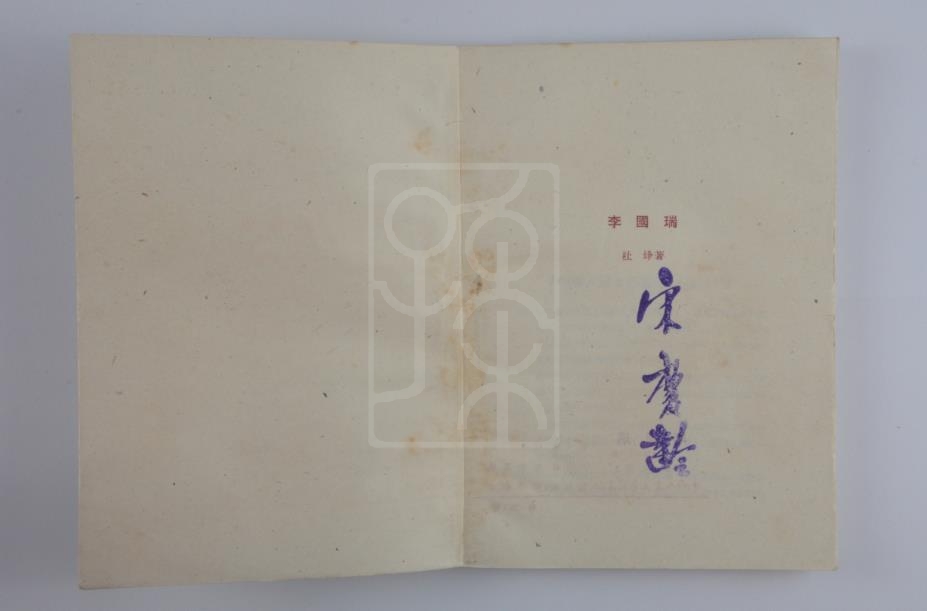 李國瑞
杜烽著
宋慶齡